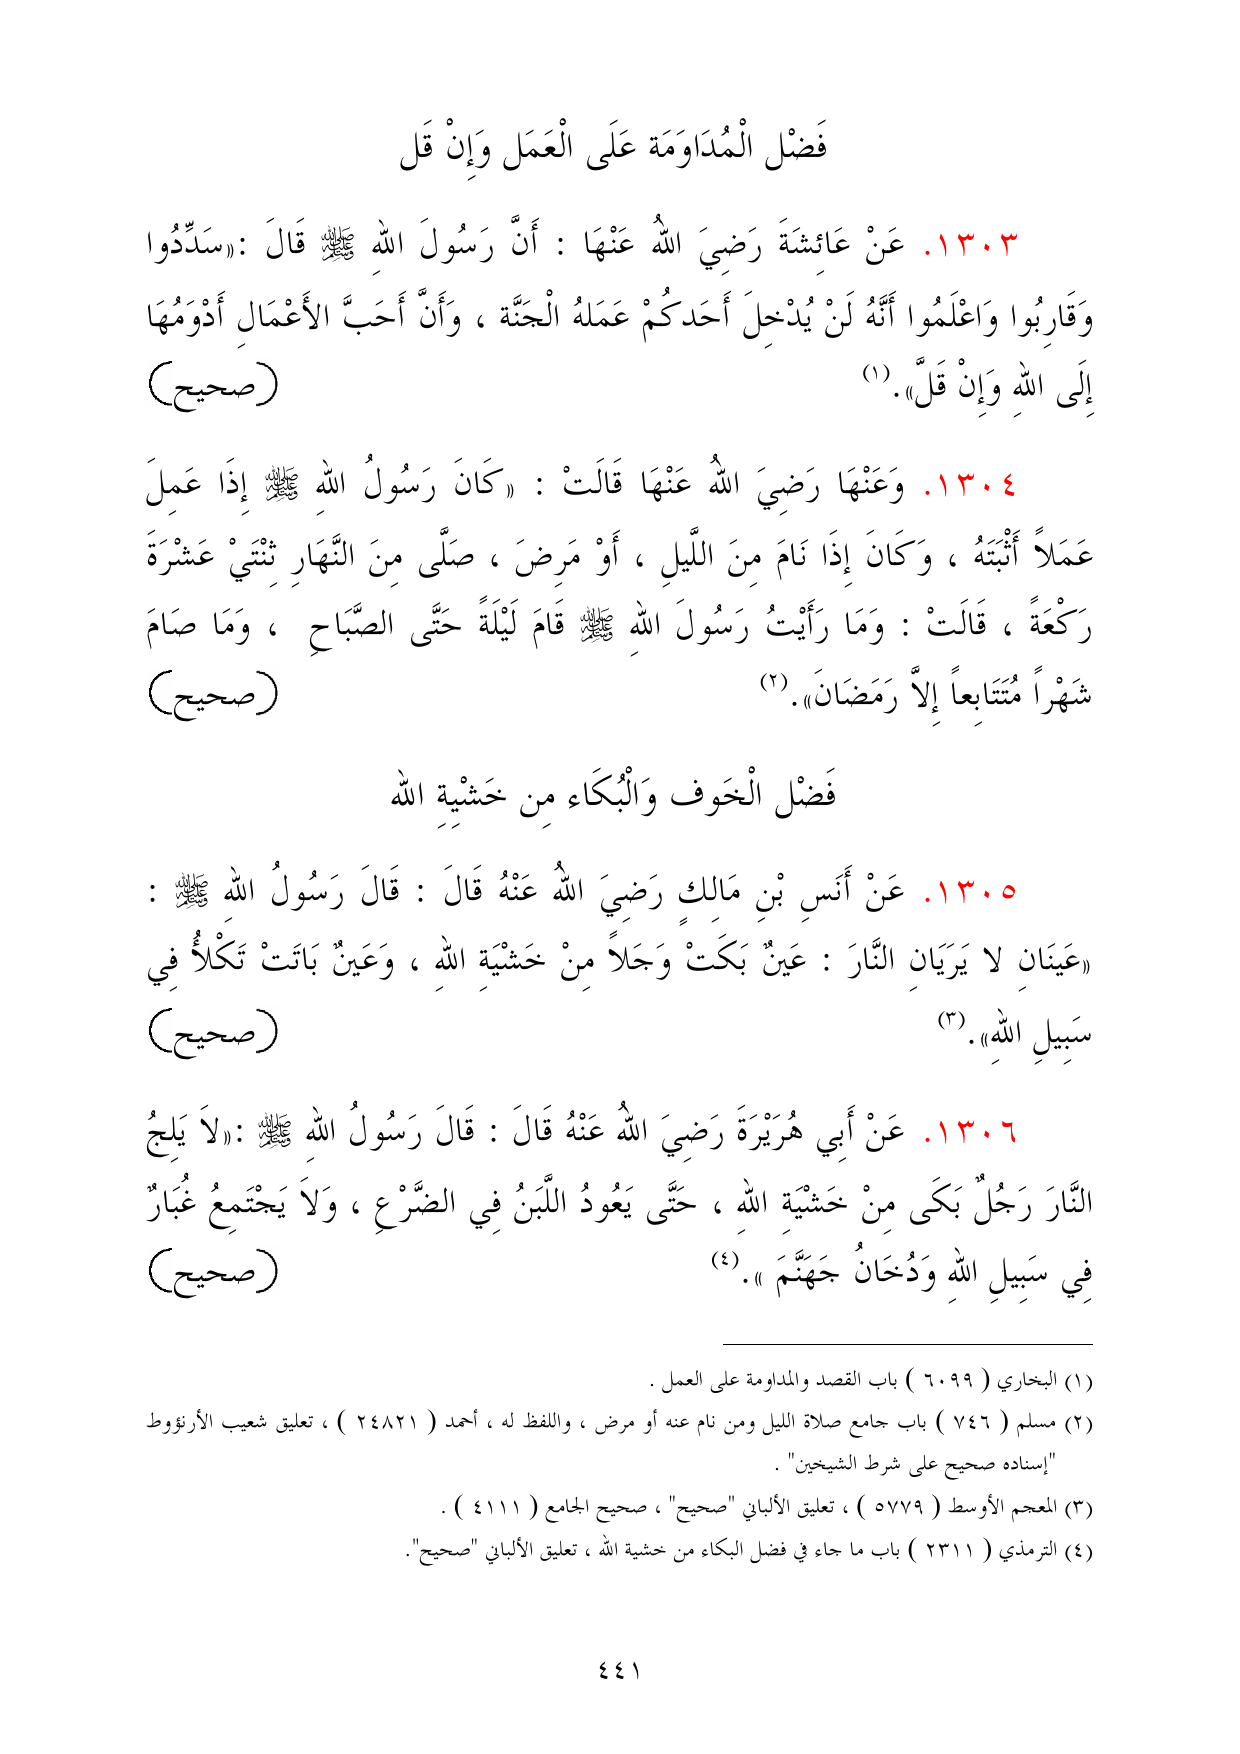 فَضْل الْمُدَاوَمَة عَلَى الْعَمَل وَإِنْ قَل
١٣٠٣. عَنْ عَائِشَةَ رَضِيَ اللهُ عَنْهَا : أَنَّ رَسُولَ اللهِ ﷺ قَالَ :«سَدِّدُوا
وَقَارِبُوا وَاعْلَمُوا أَنَّهُ لَنْ يُدْخِلَ أَحَدكُمْ عَمَلهُ الْجَنَّة ، وَأَنَّ أَحَبَّ الأَعْمَالِ أَدْوَمُهَا
إِلَى اللهِ وَإِنْ قَلَّ».(١) (صحيح)
١٣٠٤. وَعَنْهَا رَضِيَ اللهُ عَنْهَا قَالَتْ : «كَانَ رَسُولُ اللهِ ﷺ إِذَا عَمِلَ
عَمَلاً أَثْبَتَهُ ، وَكَانَ إِذَا نَامَ مِنَ اللَّيلِ ، أَوْ مَرِضَ ، صَلَّى مِنَ النَّهَارِ ثِنْتَيْ عَشْرَةَ
رَكْعَةً ، قَالَتْ : وَمَا رَأَيْتُ رَسُولَ اللهِ ﷺ قَامَ لَيْلَةً حَتَّى الصَّبَاحِ ، وَمَا صَامَ
شَهْراً مُتَتَابِعاً إِلاَّ رَمَضَانَ».(٢) (صحيح)
فَضْل الْخَوف وَالْبُكَاء مِن خَشْيِةِ الله
١٣٠٥. عَنْ أَنَسِ بْنِ مَالِكٍ رَضِيَ اللهُ عَنْهُ قَالَ : قَالَ رَسُولُ اللهِ ﷺ :
«عَينَانِ لا يَرَيَانِ النَّارَ : عَينٌ بَكَتْ وَجَلاً مِنْ خَشْيَةِ اللهِ ، وَعَينٌ بَاتَتْ تَكْلأُ فِي
سَبِيلِ اللهِ».(٣) (صحيح)
١٣٠٦. عَنْ أَبِي هُرَيْرَةَ رَضِيَ اللهُ عَنْهُ قَالَ : قَالَ رَسُولُ اللهِ ﷺ :«لاَ يَلِجُ
النَّارَ رَجُلٌ بَكَى مِنْ خَشْيَةِ اللهِ ، حَتَّى يَعُودُ اللَّبَنُ فِي الضَّرْعِ ، وَلاَ يَجْتَمِعُ غُبَارٌ
فِي سَبِيلِ اللهِ وَدُخَانُ جَهَنَّمَ ».(٤) (صحيح)
(١) البخاري ( ٦٠٩٩ ) باب القصد والمداومة على العمل .
(٢) مسلم ( ٧٤٦ ) باب جامع صلاة الليل ومن نام عنه أو مرض ، واللفظ له ، أحمد ( ٢٤٨٢١ ) ، تعليق شعيب الأرنؤوط
"إسناده صحيح على شرط الشيخين" .
(٣) المعجم الأوسط ( ٥٧٧٩ ) ، تعليق الألباني "صحيح" ، صحيح الجامع ( ٤١١١ ) .
(٤) الترمذي ( ٢٣١١ ) باب ما جاء في فضل البكاء من خشية الله ، تعليق الألباني "صحيح".
٤٤١